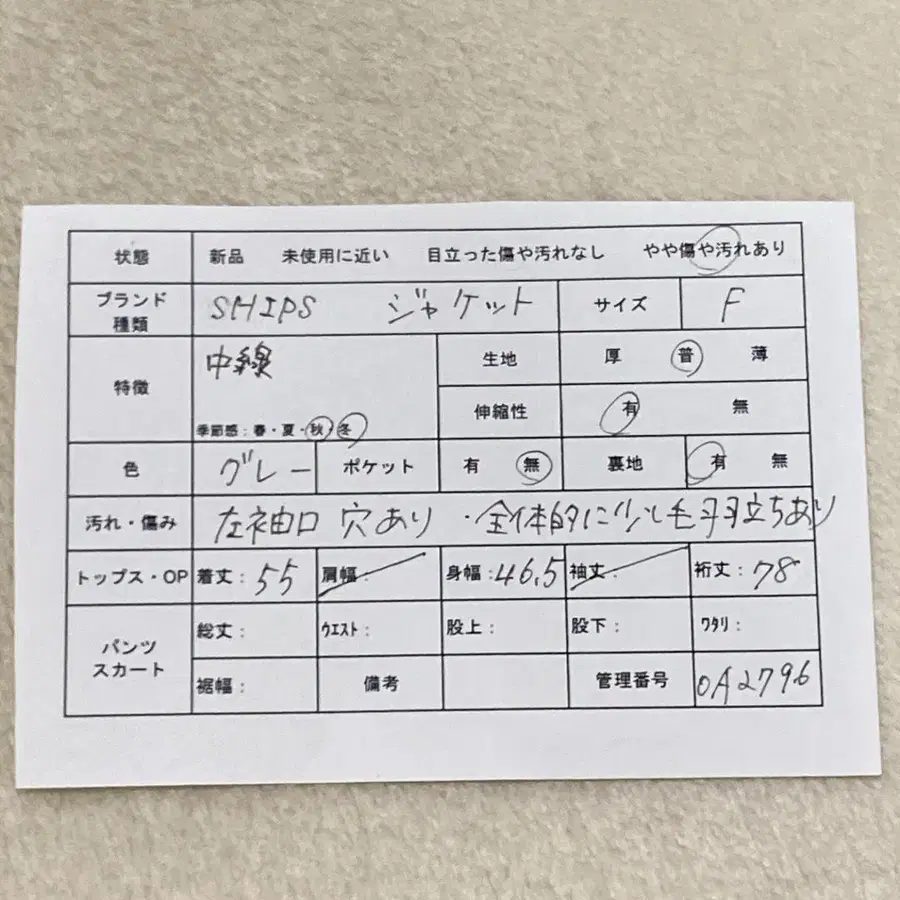 状態 新品 未使用に近い 目立った傷や汚れなし やや傷や汚れあり
ブランド 種類 SHIPS ジャケット サイズ F
特徴 中線 生地 厚 普 薄
季節感：春・夏・秋・冬 伸縮性 有 無
色 グレー ポケット 有 無 裏地 有 無
汚れ・傷み 左袖口 穴あり ・全体的に少し毛羽立ちあり
トップス・OP 着丈：55 肩幅： 身幅：46.5 袖丈： 裄丈：78
パンツ スカート 総丈： ウエスト： 股上： 股下： ワタリ：
裾幅： 備考 管理番号 OA2796